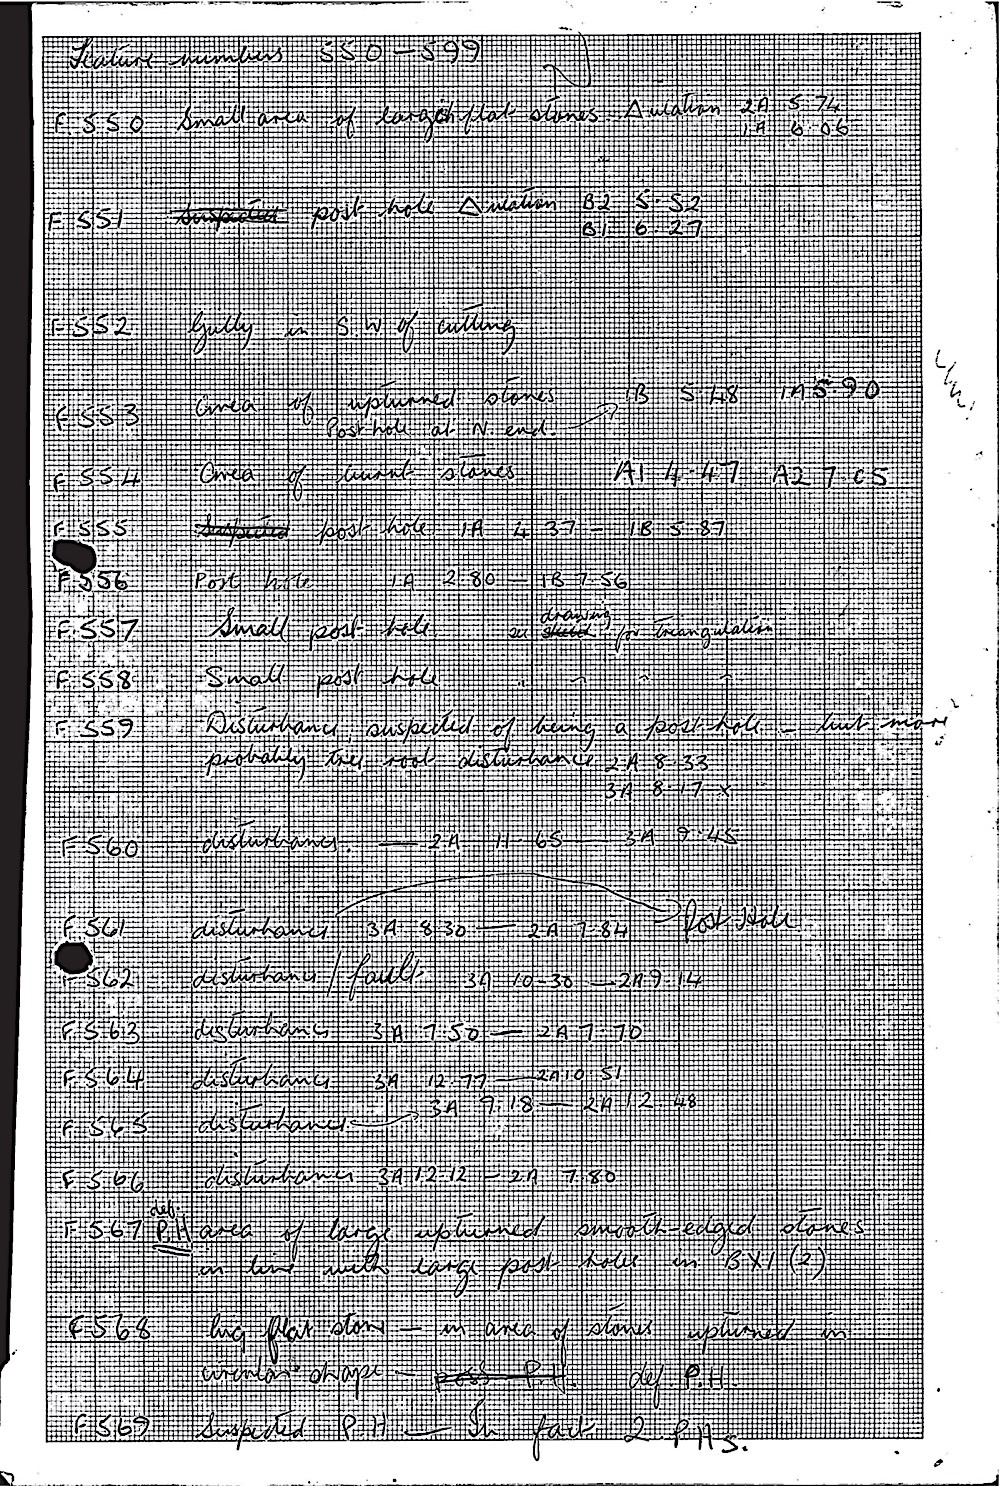 Feature numbers 550 – 599
F 550 Small area of large flat stones Δulation 2A 5.74
1A 6.06
F 551 Suspected post hole Δulation B2 5.52
B1 6.27
F 552 Gully in S.W of cutting
F 553 Area of upturned stones 1B 5.48 1A 5.90
Post hole at N. end.
F 554 Area of burnt stones A1 4.47 A2 7.05
F 555 Suspected post hole 1A 4.37 – 1B 5.87
F 556 Post hole 1A 2.80 – 1B 7.56
F 557 Small post hole see drawing for triangulation
F 558 Small post hole " " " "
F 559 Disturbance, suspected of being a post hole – but more
probably tree root disturbance 2A 8.33
3A 8.17 x
F 560 disturbance. — 2A 11.65 — 3A 9.45
F 561 disturbance 3A 8.30 — 2A 7.84 Post Hole
F 562 disturbance / fault 3A 10-30 — 2A 9.14
F 563 disturbance 3A 7.50 — 2A 7.70
F 564 disturbance 3A 12.77 — 2A 10.51
F 565 disturbance 3A 9.18 — 2A 12.48
F 566 disturbance 3A 12.12 – 2A 7.80
F 567 def. P.H area of large upturned smooth-edged stones
in line with large post holes in BX1 (2)
F 568 big flat stone – in area of stones upturned in
circular shape – poss P.H. def. P.H.
F 569 Suspected P.H — In fact 2 P.Hs.